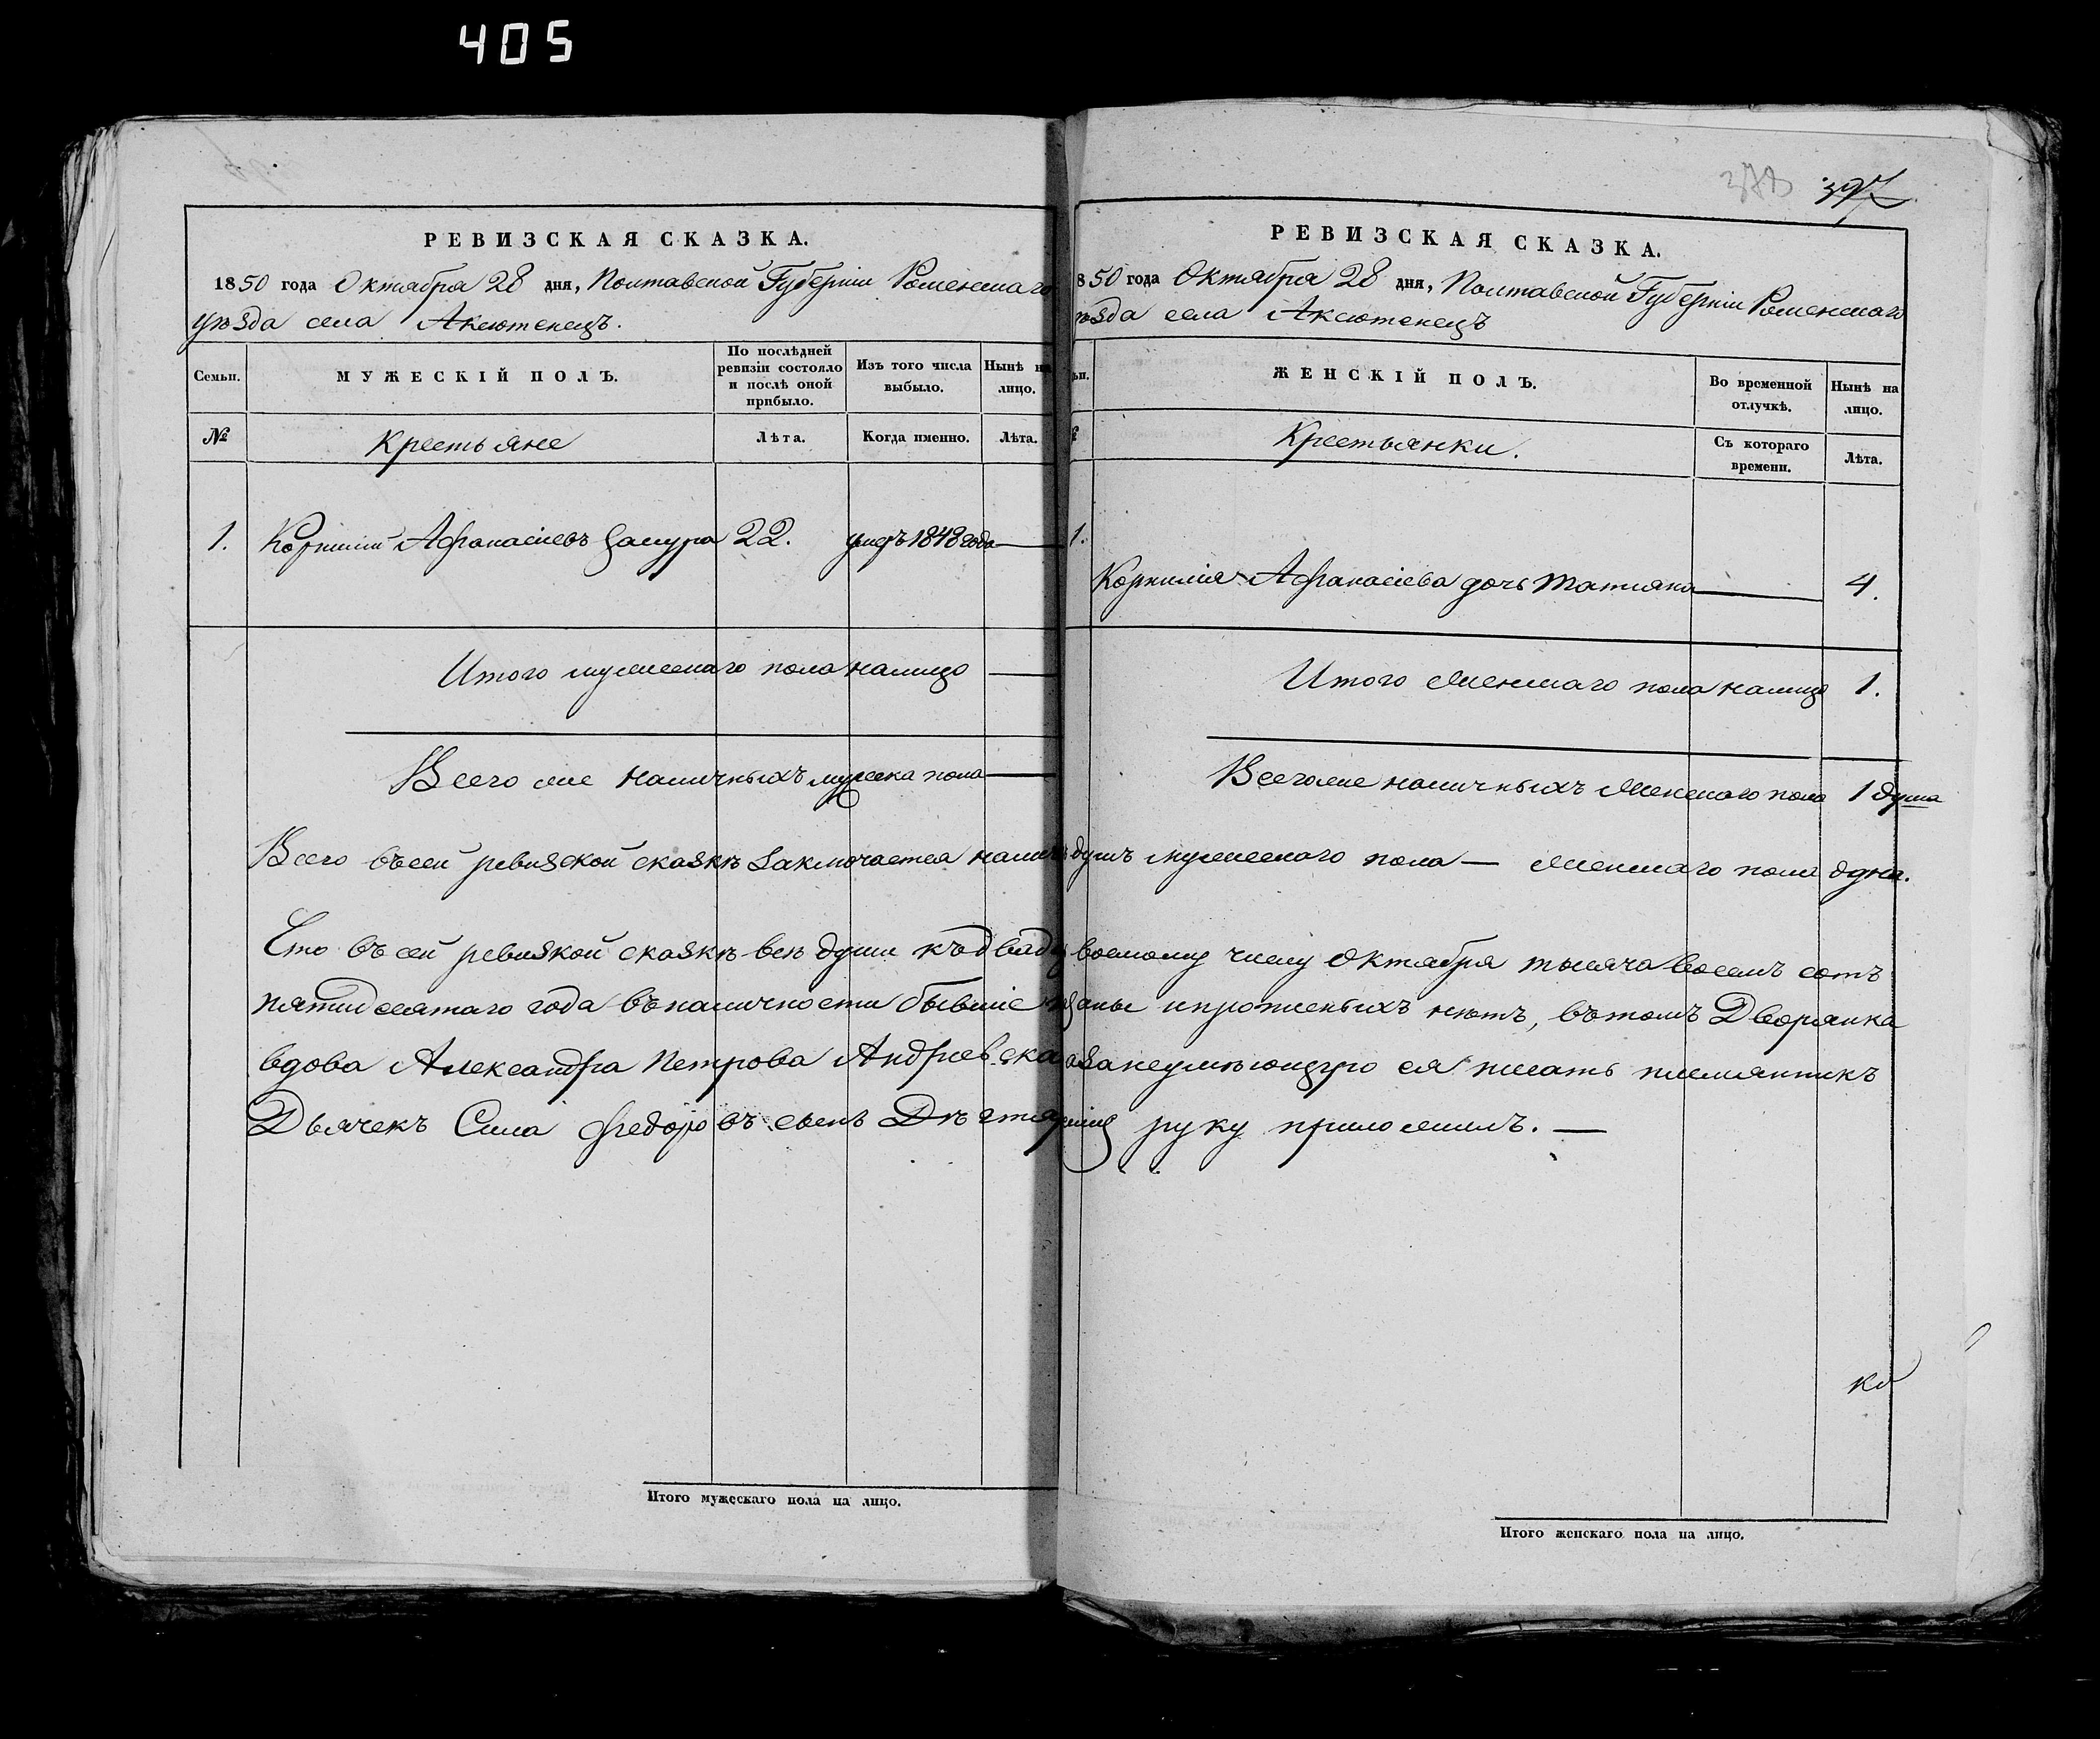 405
397
РЕВИЗСКАЯ СКАЗКА.
1850 года Октября 28 дня, Полтавской Губерніи Роменскаго
уѣзда села Аксютенецъ.
Семьи.
МУЖЕСКІЙ ПОЛЪ.
По послѣдней ревизіи состояло и послѣ оной прибыло.
Изъ того числа выбыло.
Нынѣ на лицо.
№
Крестьяне
Лѣта.
Когда именно.
Лѣта.
1. Корнилій Афанасіевъ 22. умеръ 1848 года —
Итого мужескаго пола налицо —
Всего же наличныхъ мужеска пола —
РЕВИЗСКАЯ СКАЗКА.
850 года Октября 28 дня, Полтавской Губерніи Роменскаго
ѣзда села Аксютенецъ
ьи.
ЖЕНСКІЙ ПОЛЪ.
Во временной отлучкѣ.
Нынѣ на лицо.
Крестьянки.
Съ котораго времени.
Лѣта.
1.
Корнилія Афанасіева дочь Татіяна — 4.
Итого женскаго пола налицо 1.
Всегоже наличныхъ женскаго пола 1 душа
Всего въ сей ревизской сказкѣ заключается налич душъ мужескаго пола — женскаго пола одна.
Что въ сей ревизкой сказкѣ всѣ души къ двадц восмому числу Октября тысяча восемъ сотъ
пятидесятаго года въ наличности бывшіе и прописныхъ нѣтъ, въ томъ Дворянка
вдова Александра Петрова Андріевская за неумѣющую ея писать племянникъ
Дьячекъ Сила Федоровъ сынъ руку приложилъ. —
Итого мужескаго пола на лицо.
Итого женскаго пола на лицо.